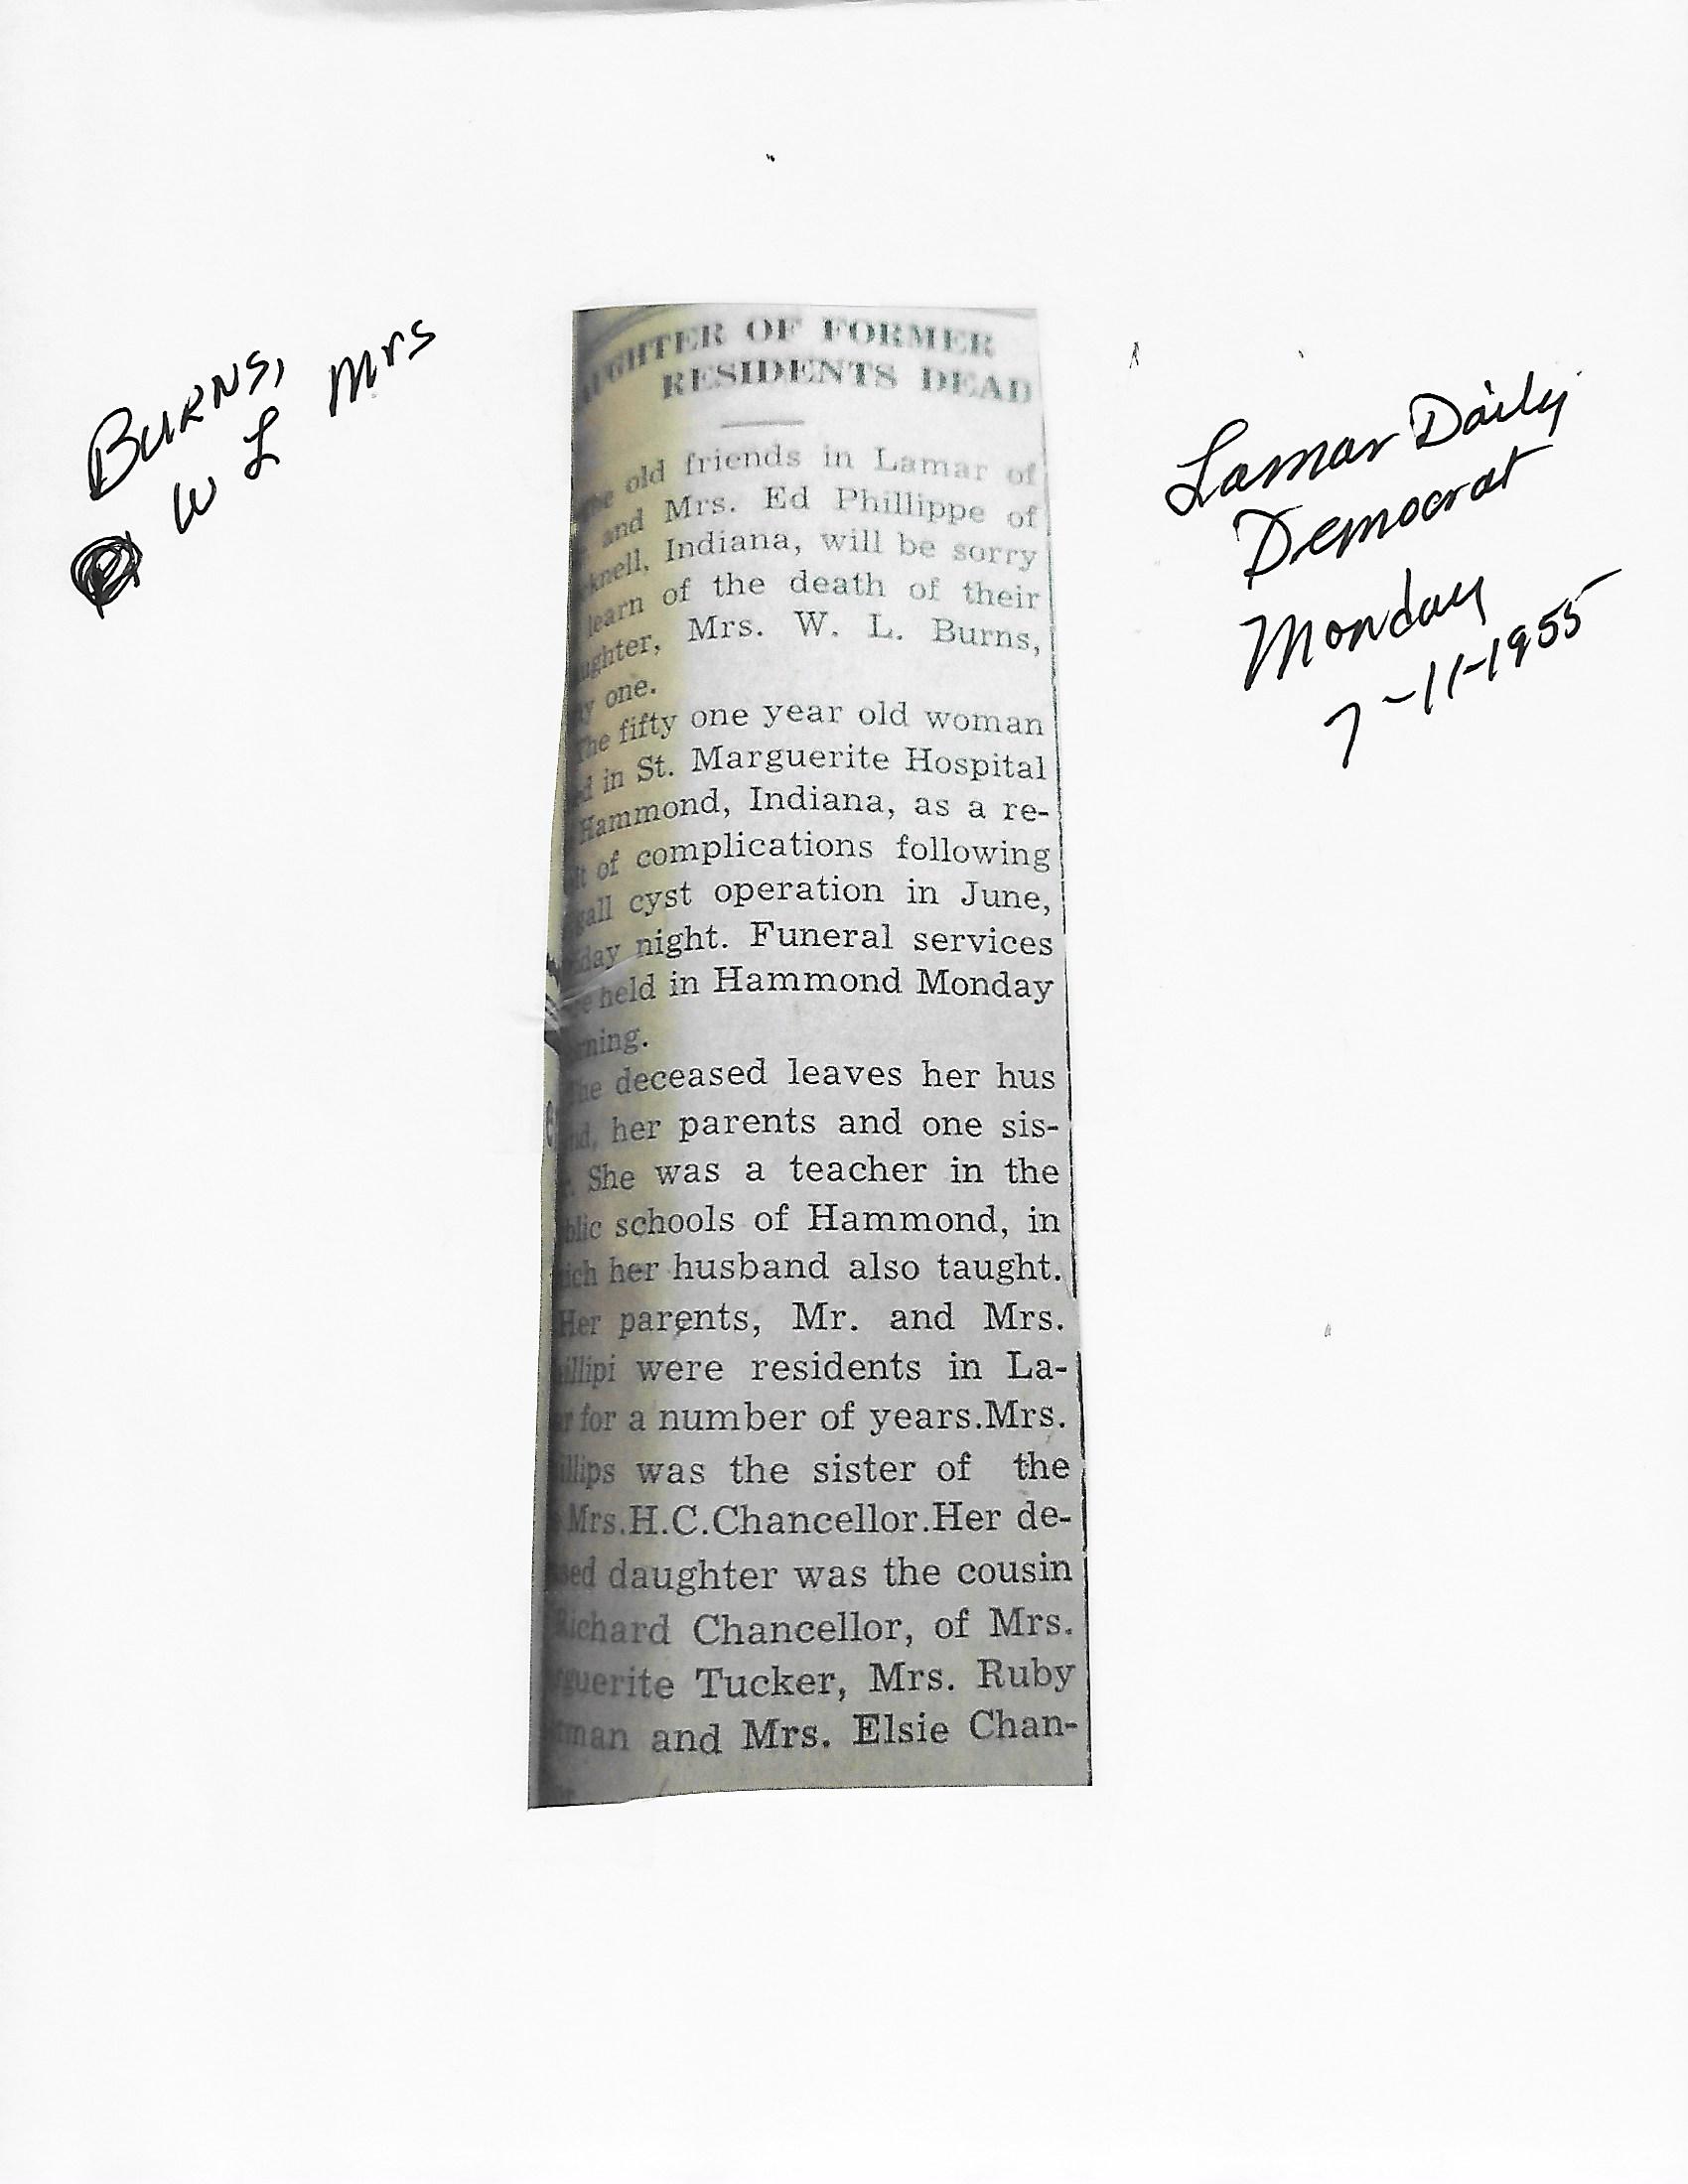 BURNS,
W L Mrs
Lamar Daily
Democrat
Monday
7-11-1955
AUGHTER OF FORMER
RESIDENTS DEAD
The old friends in Lamar of
and Mrs. Ed Phillippe of
cknell, Indiana, will be sorry
learn of the death of their
ughter, Mrs. W. L. Burns,
ty one.
The fifty one year old woman
ed in St. Marguerite Hospital
Hammond, Indiana, as a re-
lt of complications following
gall cyst operation in June,
day night. Funeral services
re held in Hammond Monday
rning.
The deceased leaves her hus
nd, her parents and one sis-
r. She was a teacher in the
blic schools of Hammond, in
ich her husband also taught.
Her parents, Mr. and Mrs.
illipi were residents in La-
r for a number of years.Mrs.
illips was the sister of the
Mrs.H.C.Chancellor.Her de-
sed daughter was the cousin
Richard Chancellor, of Mrs.
rguerite Tucker, Mrs. Ruby
man and Mrs. Elsie Chan-